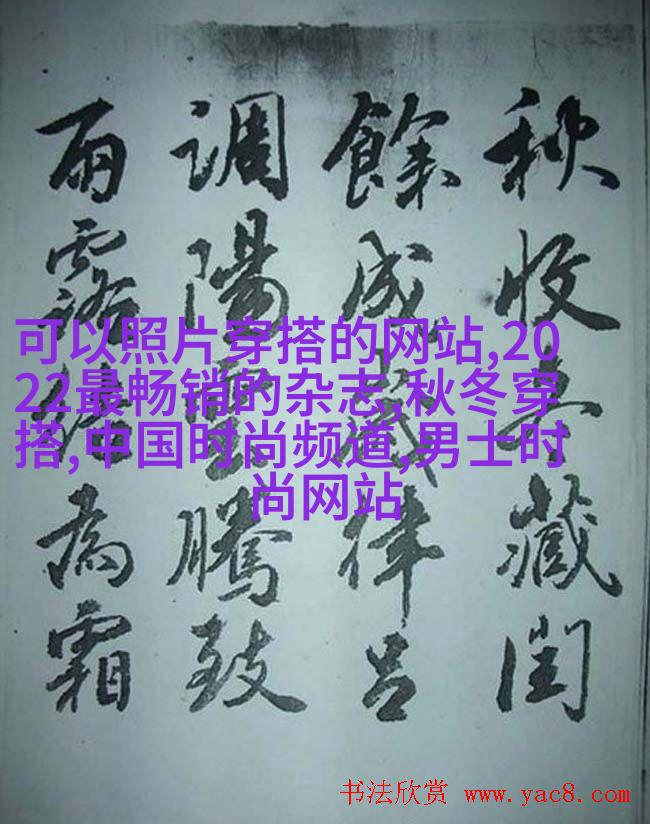 秋收冬藏閏
餘成歲律呂
調陽雲騰致
雨露結為霜
可以照片穿搭的网站,20
22最畅销的杂志,秋冬穿
搭,中国时尚频道,男士时
尚网站
书法欣赏 www.yac8.com